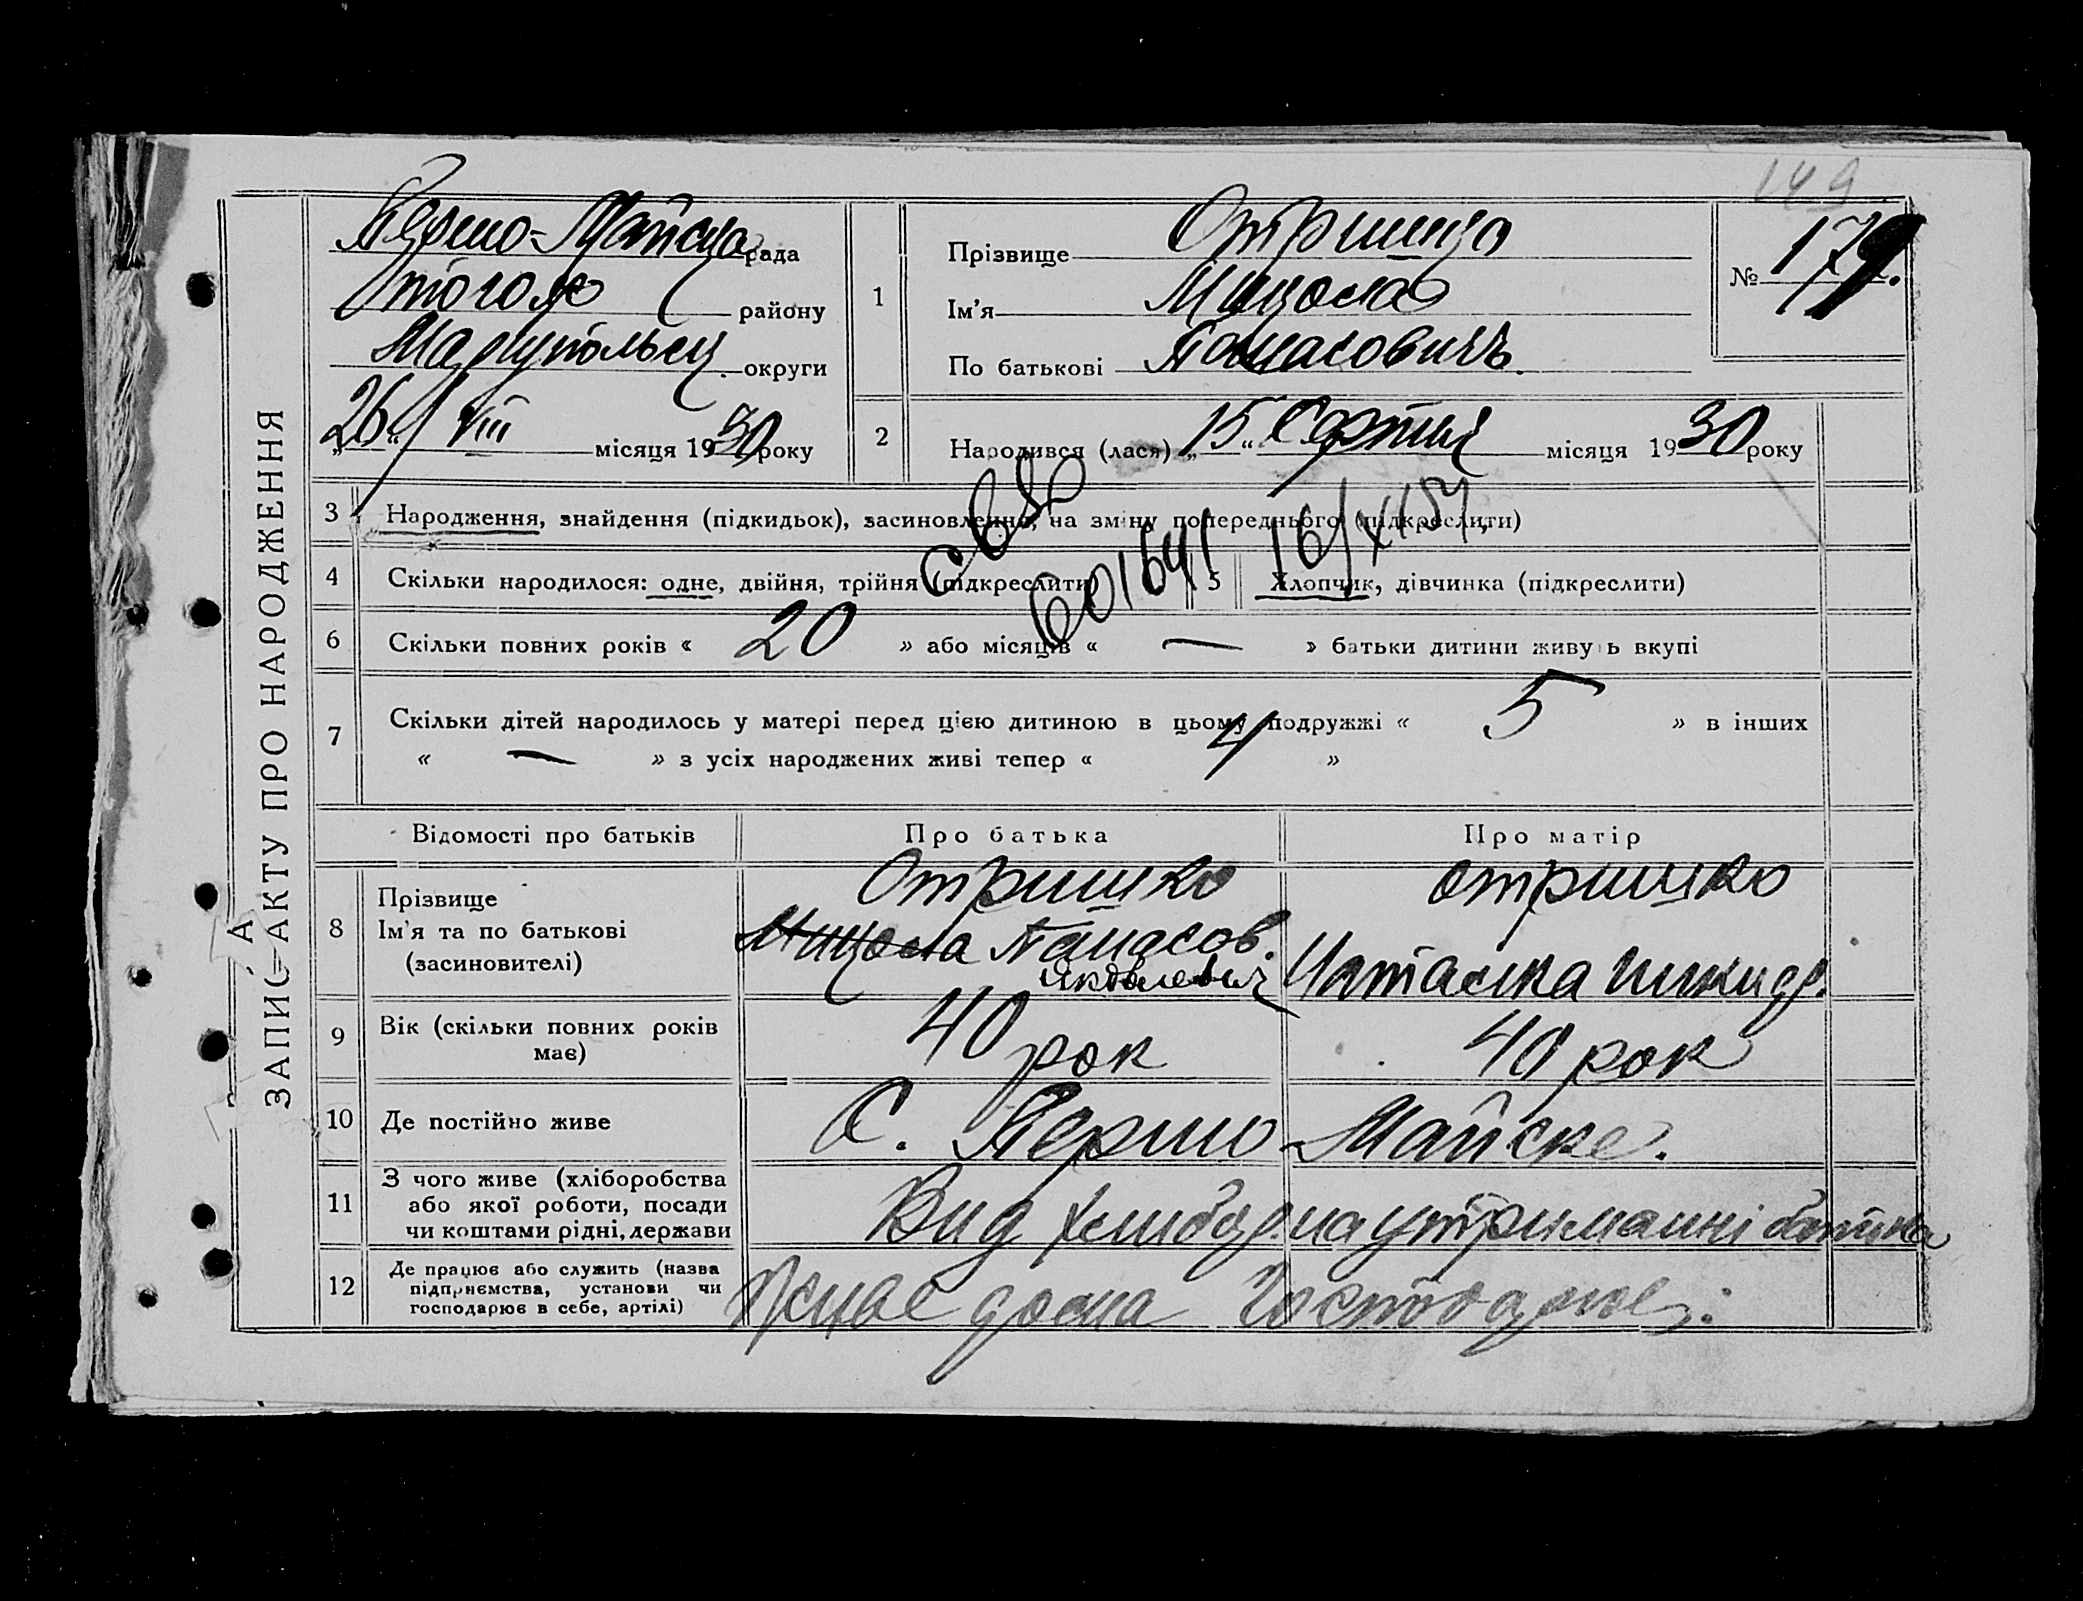 149
ЗАПИС АКТУ ПРО НАРОДЖЕННЯ
Першо-Майська рада
району
Маріупольськ округи
„26“ VIII місяця 1930 року
1
Прізвище Отришко
Ім'я Микола
По батькові Панасович
№ 179.
2 Народився (лася) „15“ Серпня місяця 1930 року
3 Народження, знайдення (підкидьок), засиновлення, на зміну попереднього (підкреслити)
4 Скільки народилося: одне, двійня, трійня (підкреслити)
5 Хлопчик, дівчинка (підкреслити)
601641 16/XI 54
6 Скільки повних років « 20 » або місяців « — » батьки дитини живуть вкупі
7 Скільки дітей народилось у матері перед цією дитиною в цьому подружжі « 5 » в інших
« — » з усіх народжених живі тепер « 4 »
Відомості про батьків Про батька Про матір
8 Прізвище
Ім'я та по батькові
(засиновителі)
Отришко
Микола Панасов.
Яковлевич
Отришко
Наталка
9 Вік (скільки повних років
має)
40 рок 40 рок
10 Де постійно живе С. Першо-Майське.
11 З чого живе (хліборобства
або якої роботи, посади
чи коштами рідні, держави
Вид хлибор. на утриманні батька
12 Де працює або служить (назва
підприємства, установи чи
господарює в себе, артілі)
дома Господарює.